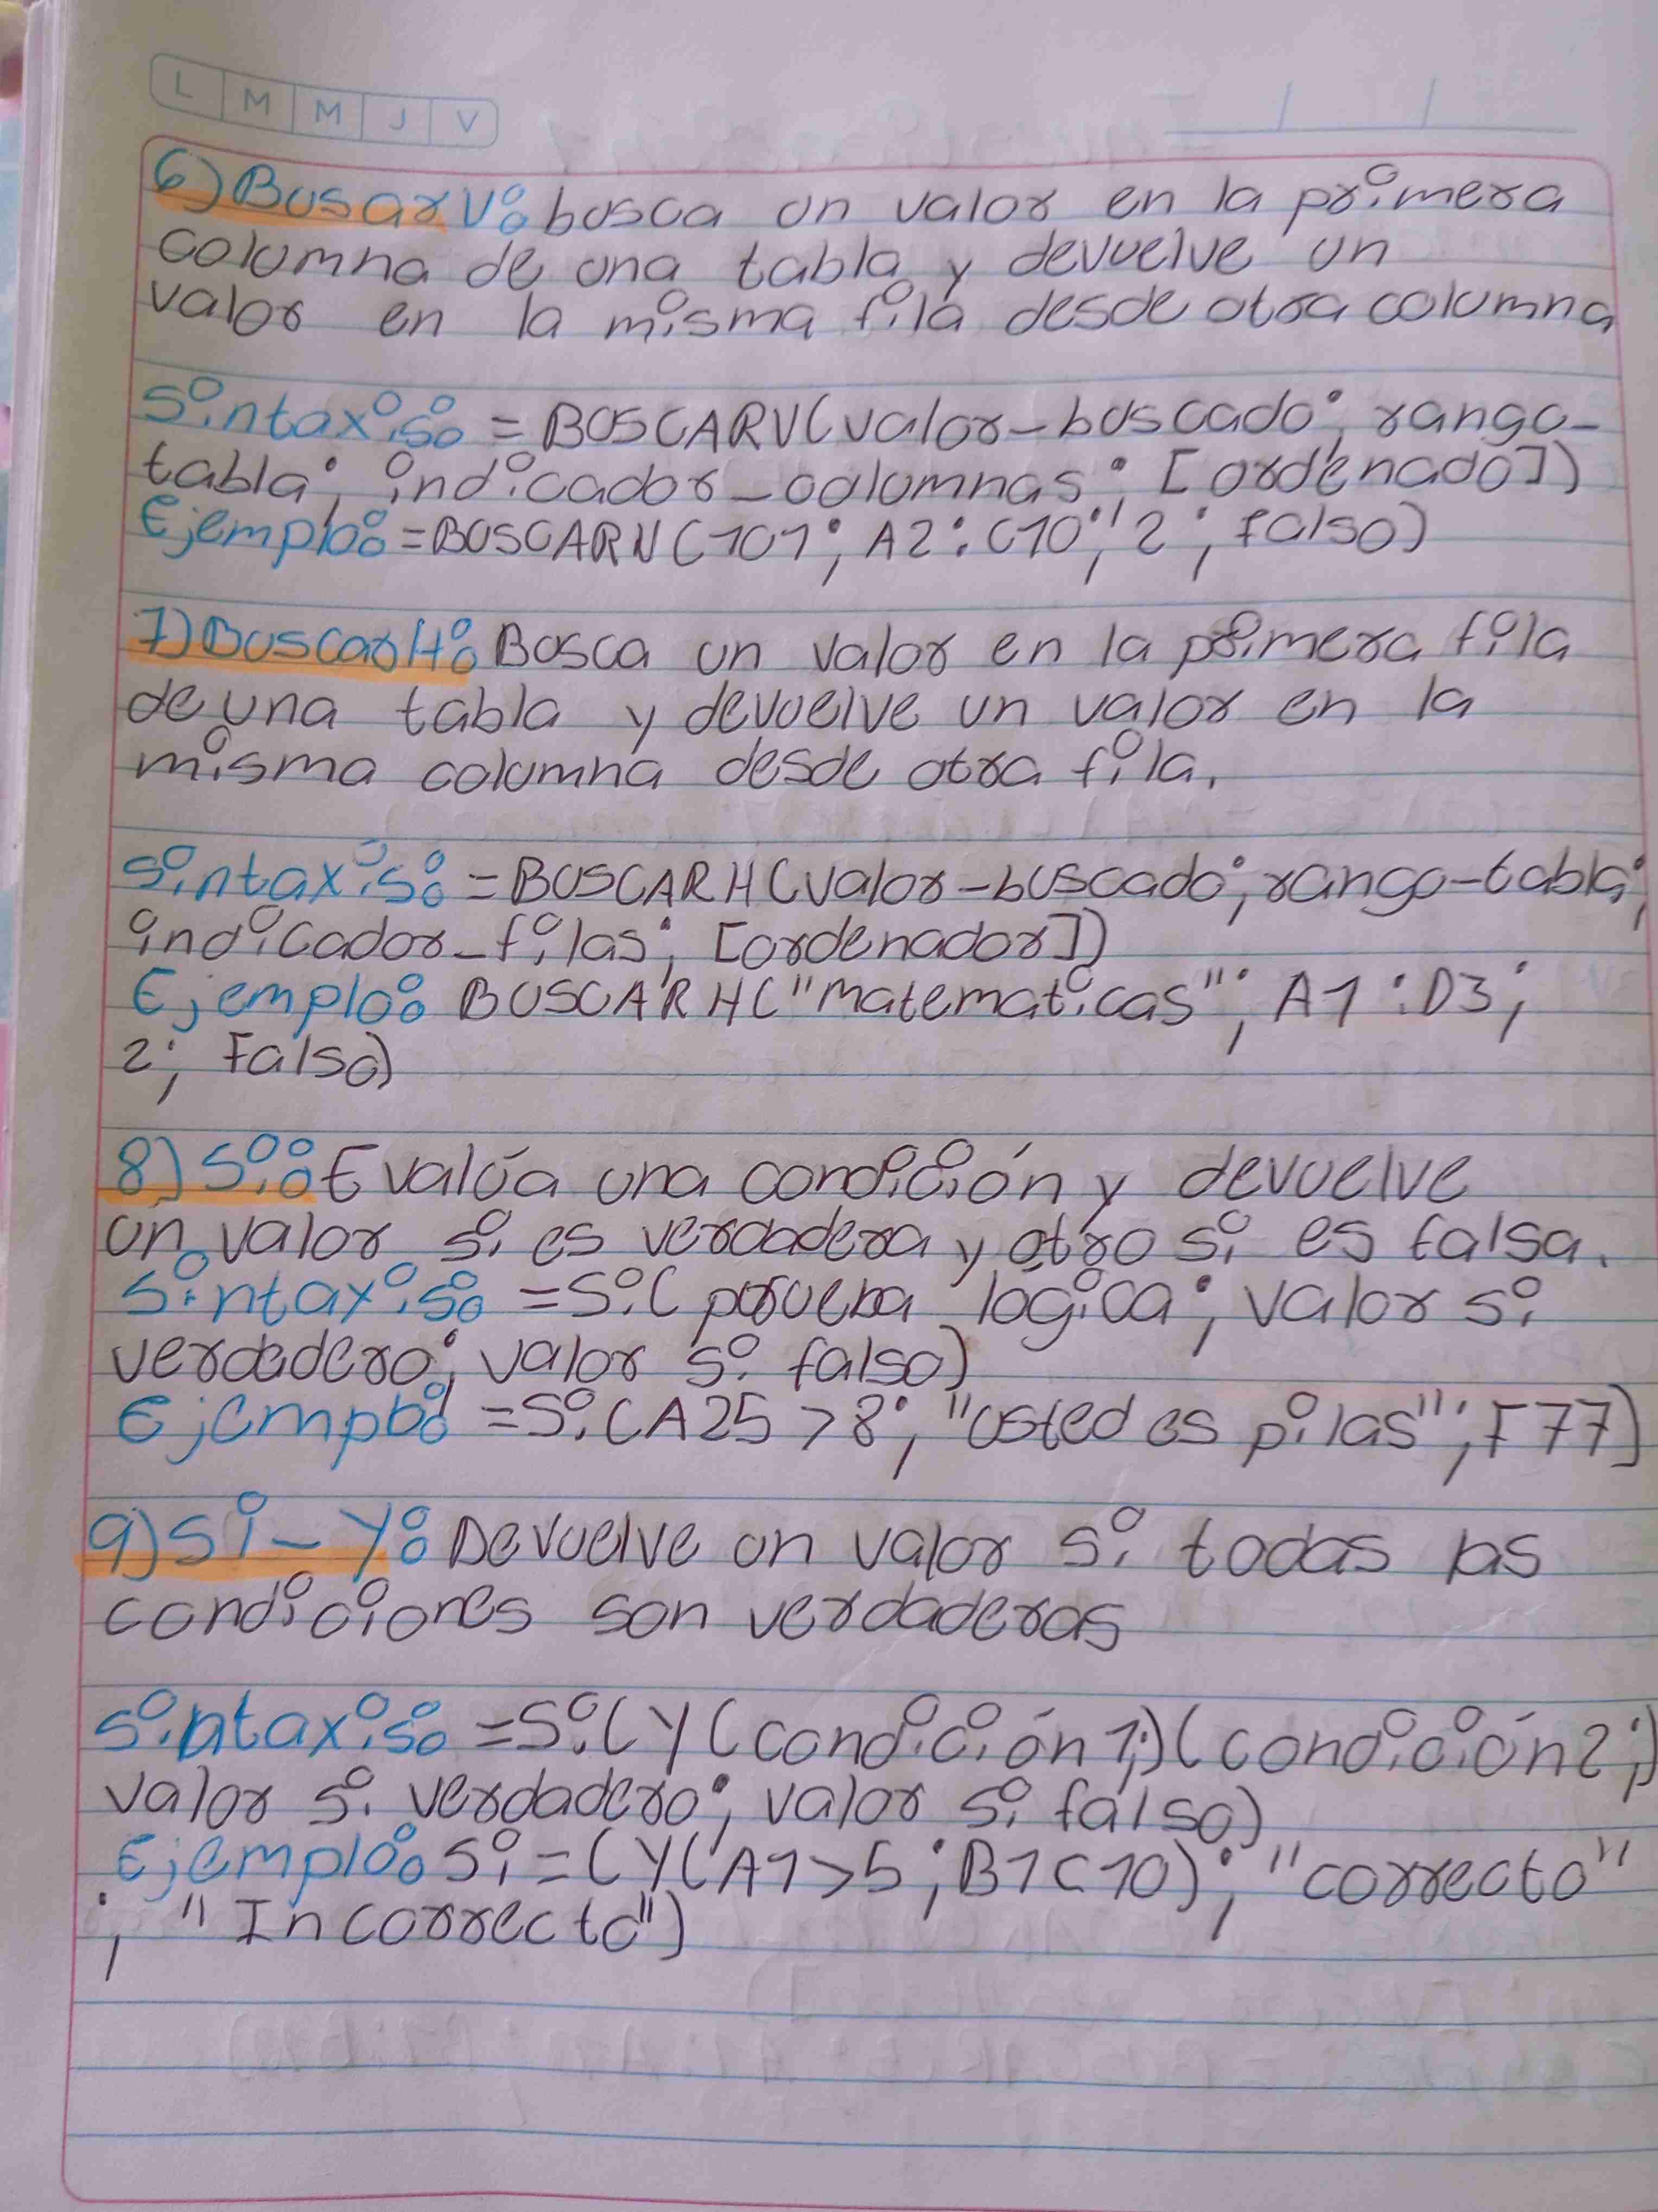 L M M J V
6) BusarV: busca un valor en la primera
columna de una tabla y devuelve un
valor en la misma fila desde otra columna
Sintaxis: =BUSCARV(valor-buscado; rango-
tabla; indicador-columnas; [ordenado])
Ejemplo: =BUSCARV(101; A2:C10; 2; falso)
7) BuscarH: Busca un valor en la primera fila
de una tabla y devuelve un valor en la
misma columna desde otra fila.
Sintaxis: =BUSCARH(valor-buscado; rango-tabla;
indicador-filas; [ordenador])
Ejemplo: BUSCARH("Matematicas"; A1:D3;
2; Falso)
8) Si: Evalúa una condición y devuelve
un valor si es verdadera y otro si es falsa.
Sintaxis: =Si( prueba lógica; valor si
verdadero; valor si falso)
Ejemplo: =Si(A25>8; "Usted es pilas"; F77)
9) Si-Y: Devuelve un valor si todas las
condiciones son verdaderas
Sintaxis: =Si(Y(condición1;)(condición2;)
valor si verdadero; valor si falso)
Ejemplo: Si=(Y(A1>5;B1<10); "correcto"
; "Incorrecto")